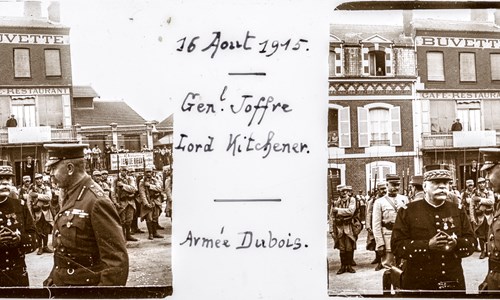 BUVETTE
CAFÉ-RESTAURANT
16 Aout 1915.
Gen.l Joffre
Lord Kitchener.
Armée Dubois.
BUVETTE
CAFE-RESTAURANT